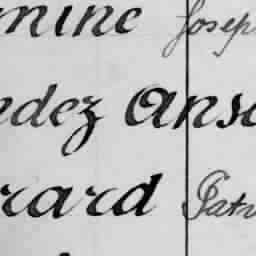 mine Josep
ndez Ans
rard Patr